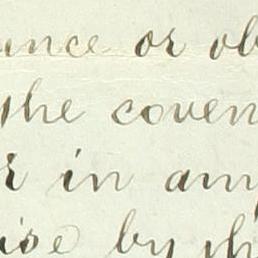 ance or ob
the coven
r in any
ise by th